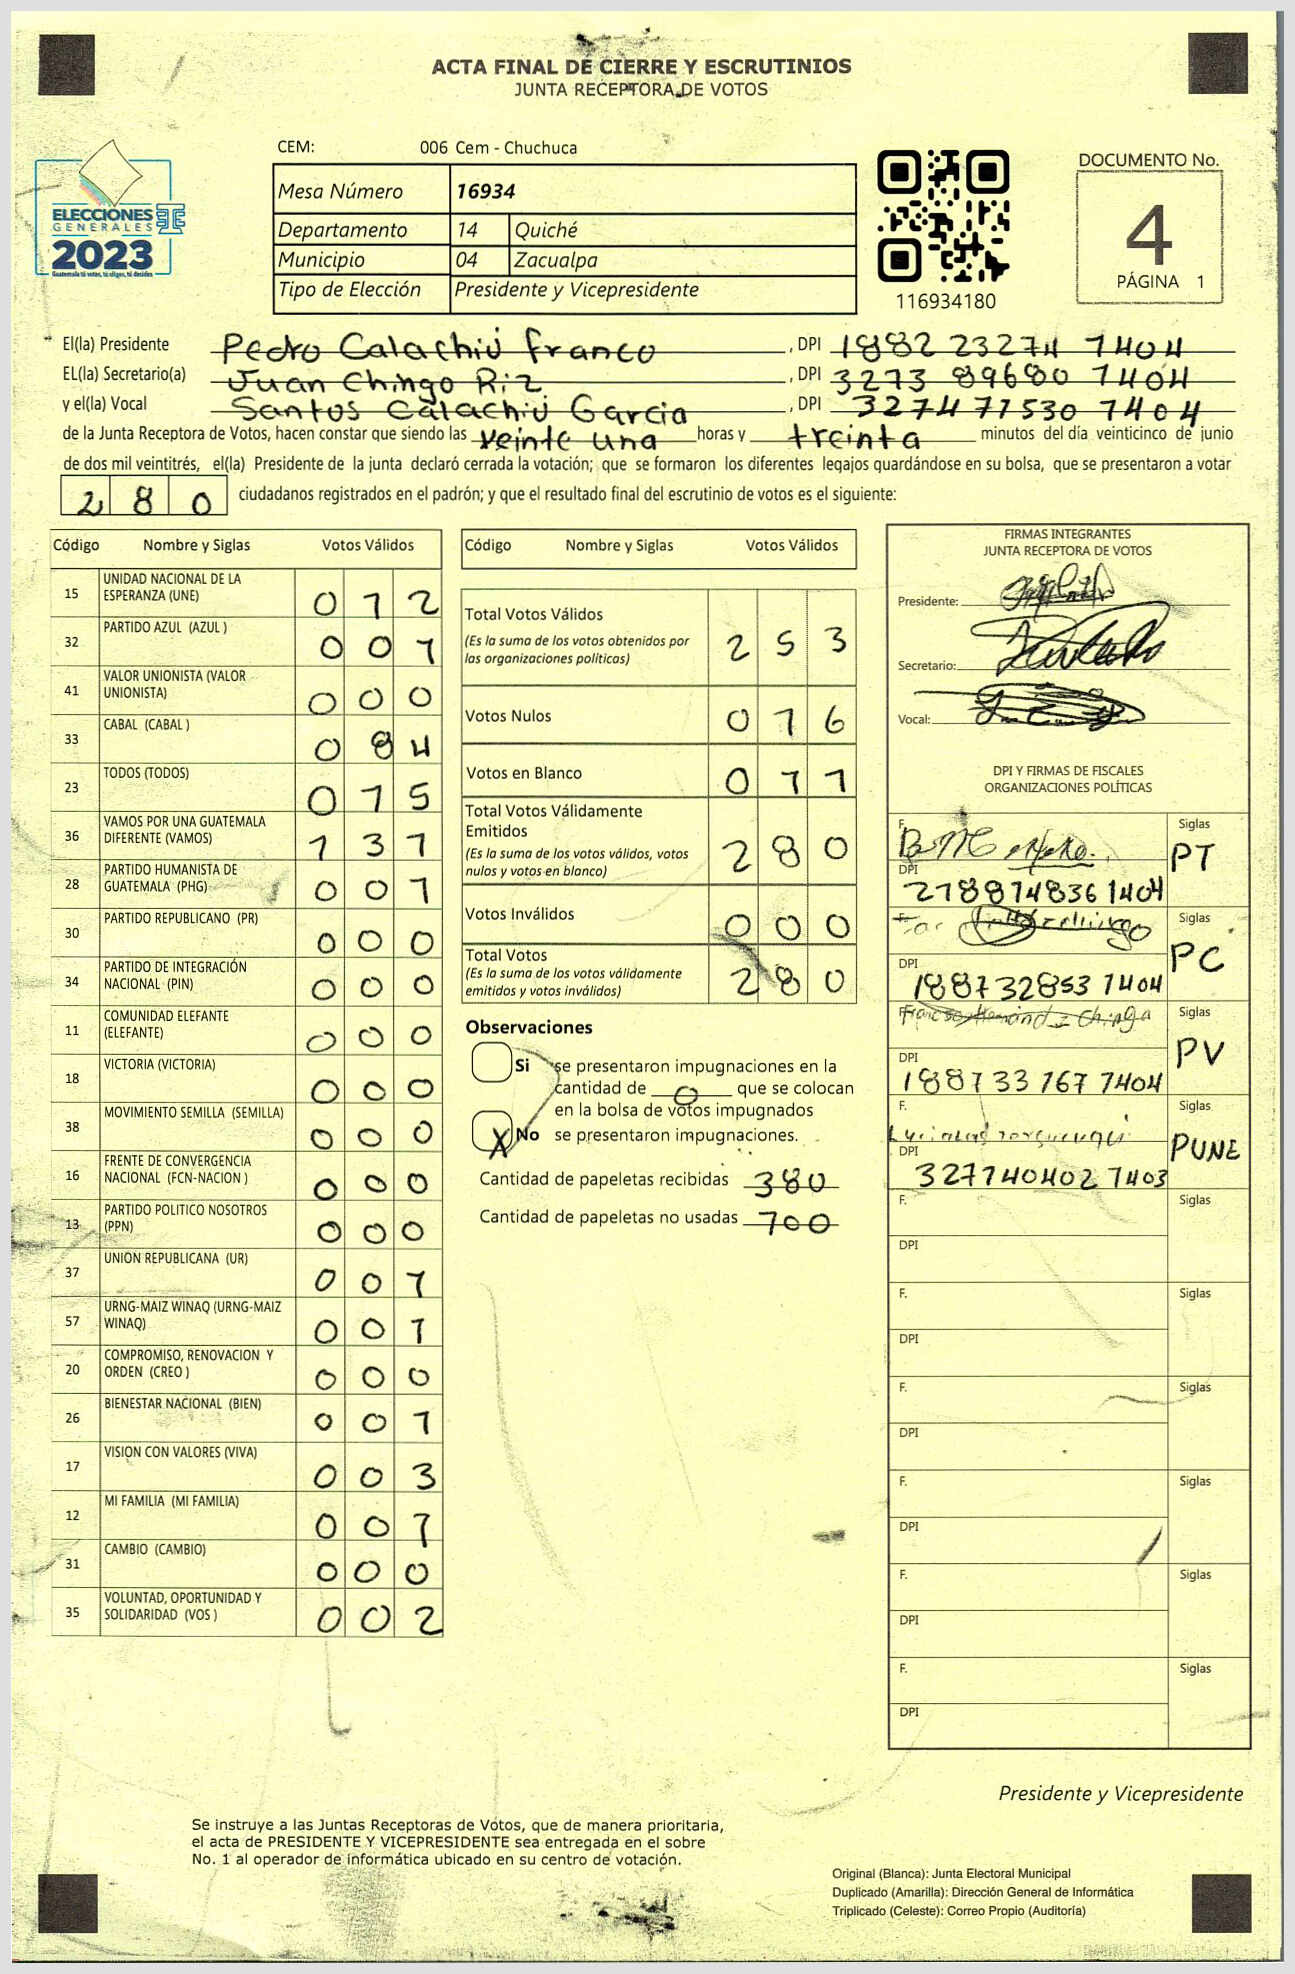 ACTA FINAL DE CIERRE Y ESCRUTINIOS
JUNTA RECEPTORA DE VOTOS
CEM: 006 Cem - Chuchuca
Mesa Número 16934
Departamento 14 Quiché
Municipio 04 Zacualpa
Tipo de Elección Presidente y Vicepresidente
ELECCIONES
GENERALES
2023
Guatemala tú votas, tú eliges, tú decides
116934180
DOCUMENTO No.
4
PÁGINA 1
El(la) Presidente Pedro Calachiú franco , DPI 1882 23274 1404
EL(la) Secretario(a) Juan Chingo Riz , DPI 3273 89680 1404
y el(la) Vocal Santos Calachiú Garcia , DPI 3274 77530 1404
de la Junta Receptora de Votos, hacen constar que siendo las veinte una horas y treinta minutos del día veinticinco de junio
de dos mil veintitrés, el(la) Presidente de la junta declaró cerrada la votación; que se formaron los diferentes legajos quardándose en su bolsa, que se presentaron a votar
280 ciudadanos registrados en el padrón; y que el resultado final del escrutinio de votos es el siguiente:
Código Nombre y Siglas Votos Válidos
15 UNIDAD NACIONAL DE LA
ESPERANZA (UNE) 012
32 PARTIDO AZUL (AZUL ) 001
41 VALOR UNIONISTA (VALOR
UNIONISTA) 000
33 CABAL (CABAL ) 084
23 TODOS (TODOS) 015
36 VAMOS POR UNA GUATEMALA
DIFERENTE (VAMOS) 131
28 PARTIDO HUMANISTA DE
GUATEMALA (PHG) 001
30 PARTIDO REPUBLICANO (PR) 000
34 PARTIDO DE INTEGRACIÓN
NACIONAL (PIN) 000
11 COMUNIDAD ELEFANTE
(ELEFANTE) 000
18 VICTORIA (VICTORIA) 000
38 MOVIMIENTO SEMILLA (SEMILLA) 000
16 FRENTE DE CONVERGENCIA
NACIONAL (FCN-NACION ) 000
13 PARTIDO POLITICO NOSOTROS
(PPN) 000
37 UNION REPUBLICANA (UR) 001
57 URNG-MAIZ WINAQ (URNG-MAIZ
WINAQ) 001
20 COMPROMISO, RENOVACION Y
ORDEN (CREO ) 000
26 BIENESTAR NACIONAL (BIEN) 001
17 VISION CON VALORES (VIVA) 003
12 MI FAMILIA (MI FAMILIA) 001
31 CAMBIO (CAMBIO) 000
35 VOLUNTAD, OPORTUNIDAD Y
SOLIDARIDAD (VOS ) 002
Código Nombre y Siglas Votos Válidos
Total Votos Válidos 253
(Es la suma de los votos obtenidos por
las organizaciones políticas)
Votos Nulos 016
Votos en Blanco 011
Total Votos Válidamente
Emitidos 280
(Es la suma de los votos válidos, votos
nulos y votos en blanco)
Votos Inválidos 000
Total Votos 280
(Es la suma de los votos válidamente
emitidos y votos inválidos)
Observaciones
Si se presentaron impugnaciones en la
cantidad de 0 que se colocan
en la bolsa de votos impugnados
X No se presentaron impugnaciones.
Cantidad de papeletas recibidas 380
Cantidad de papeletas no usadas 100
FIRMAS INTEGRANTES
JUNTA RECEPTORA DE VOTOS
Presidente:
Secretario:
Vocal:
DPI Y FIRMAS DE FISCALES
ORGANIZACIONES POLÍTICAS
F. Siglas PT
DPI 218814836 1404
F. Siglas PC
DPI 188732853 1404
F. Siglas PV
DPI 188733167 1404
F. Siglas PUNE
DPI 327740402 1403
F. Siglas
DPI
F. Siglas
DPI
F. Siglas
DPI
F. Siglas
DPI
F. Siglas
DPI
F. Siglas
DPI
Presidente y Vicepresidente
Se instruye a las Juntas Receptoras de Vótos, que de manera prioritaria,
el acta de PRESIDENTE Y VICEPRESIDENTE sea entregada en el sobre
No. 1 al operador de informática ubicado en su centro de votación.
Original (Blanca): Junta Electoral Municipal
Duplicado (Amarilla): Dirección General de Informática
Triplicado (Celeste): Correo Propio (Auditoría)